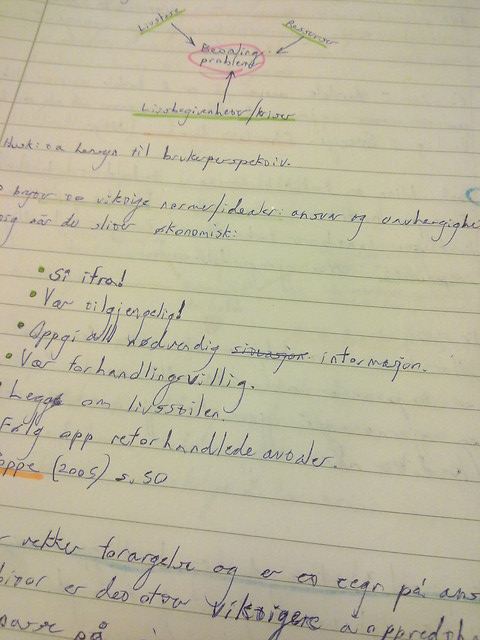 Livsløp
Ressurser
Betalings-
problemer
Livsbegivenheter/kriser
Husk: ta hensyn til brukerperspektiv.
bryter to viktige normer/idealer: ansvar og uavhengighe
når du sliter økonomisk:
• Si ifra!
• Vær tilgjengelig!
• Oppgi all nødvendig situasjon informasjon.
• Vær forhandlingsvillig.
• Legge om livsstilen.
Følg opp reforhandlede avtaler.
oppe (2005) s. 50
vekker forargelse og er et tegn på ans
er det viktigere å
på